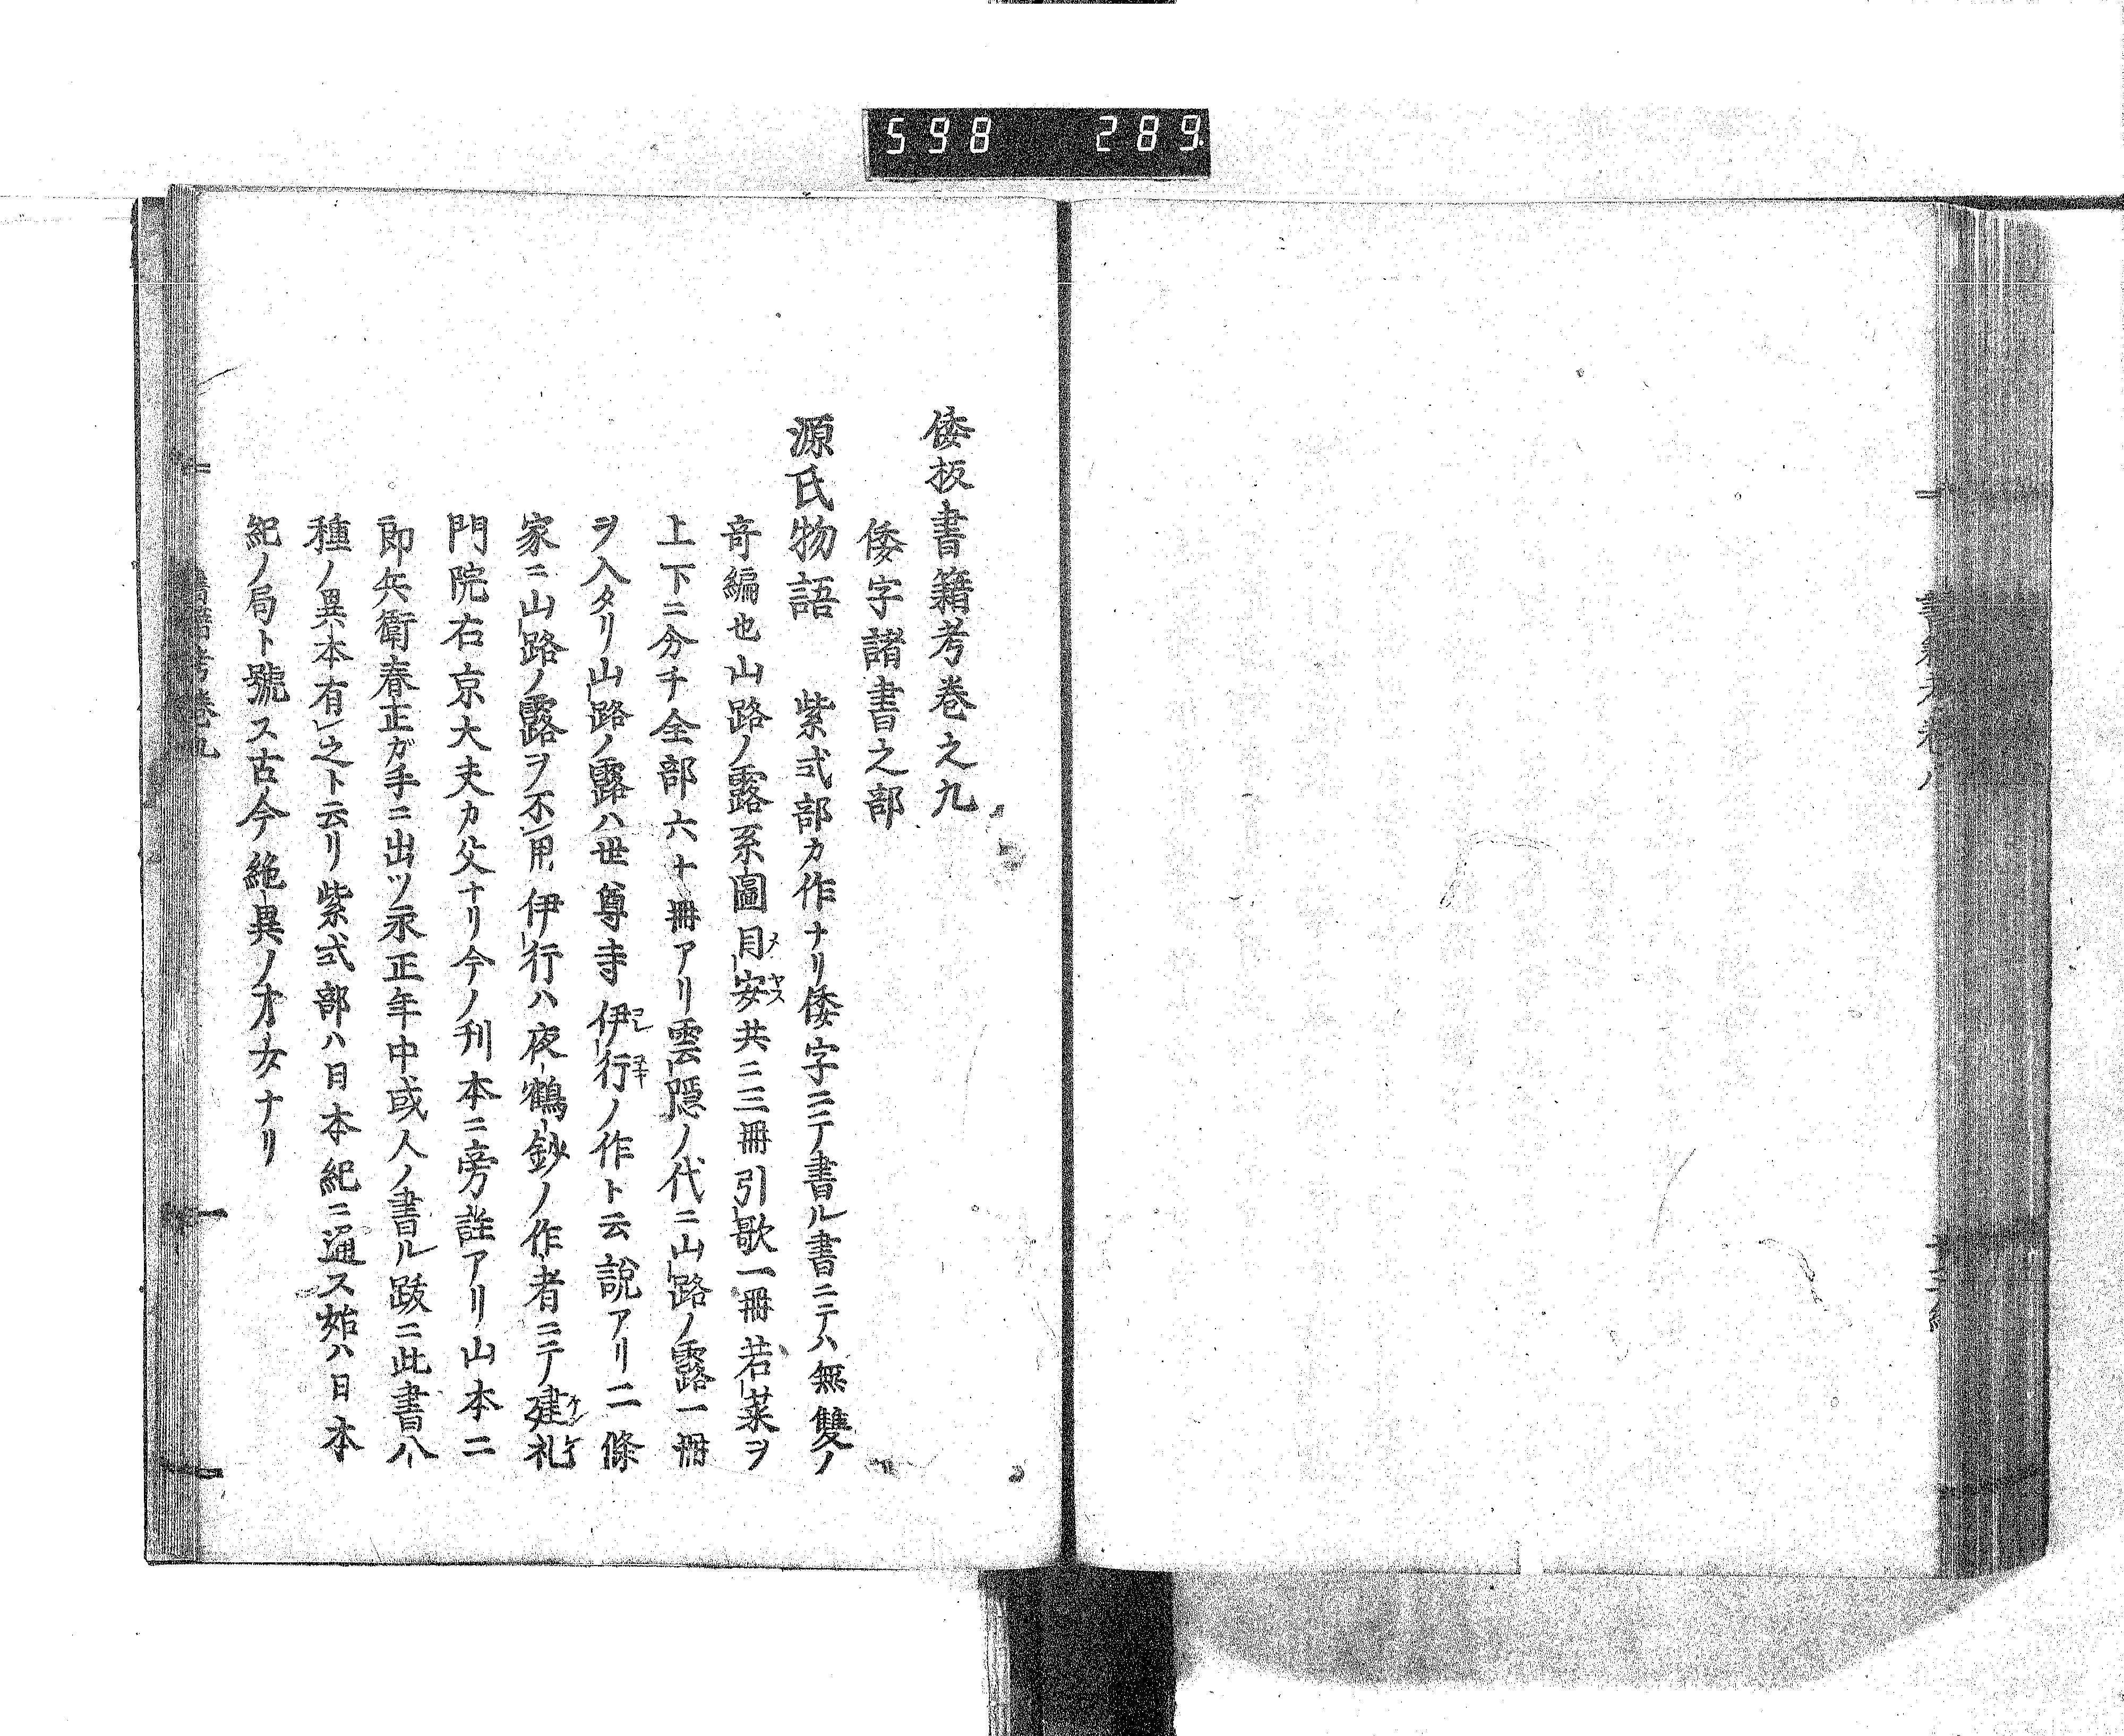 598 289
倭板書籍考巻之九
倭字諸書之部
源氏物語 紫式部カ作ナリ倭字ニテ書ル書ニテハ無雙ノ
奇編也山路ノ露系圖目安共ニ三冊引歌一冊若菜ヲ
上下ニ分チ全部六十冊アリ雲隠ノ代ニ山路ノ露一冊
ヲ入タリ山路ノ露ハ世尊寺伊行ノ作ト云説アリ二條
家ニ山路ノ露ヲ不用伊行ハ夜鶴鈔ノ作者ニテ建礼
門院右京大夫カ父ナリ今ノ刊本ニ旁註アリ山本二
郎兵衛春正ガ手ニ出ツ永正年中或人ノ書ル跋ニ此書八
種ノ異本有之ト云リ紫式部ハ日本紀ニ通ス始ハ日本
紀ノ局ト號ス古今絶異ノ才女ナリ
書籍考巻九